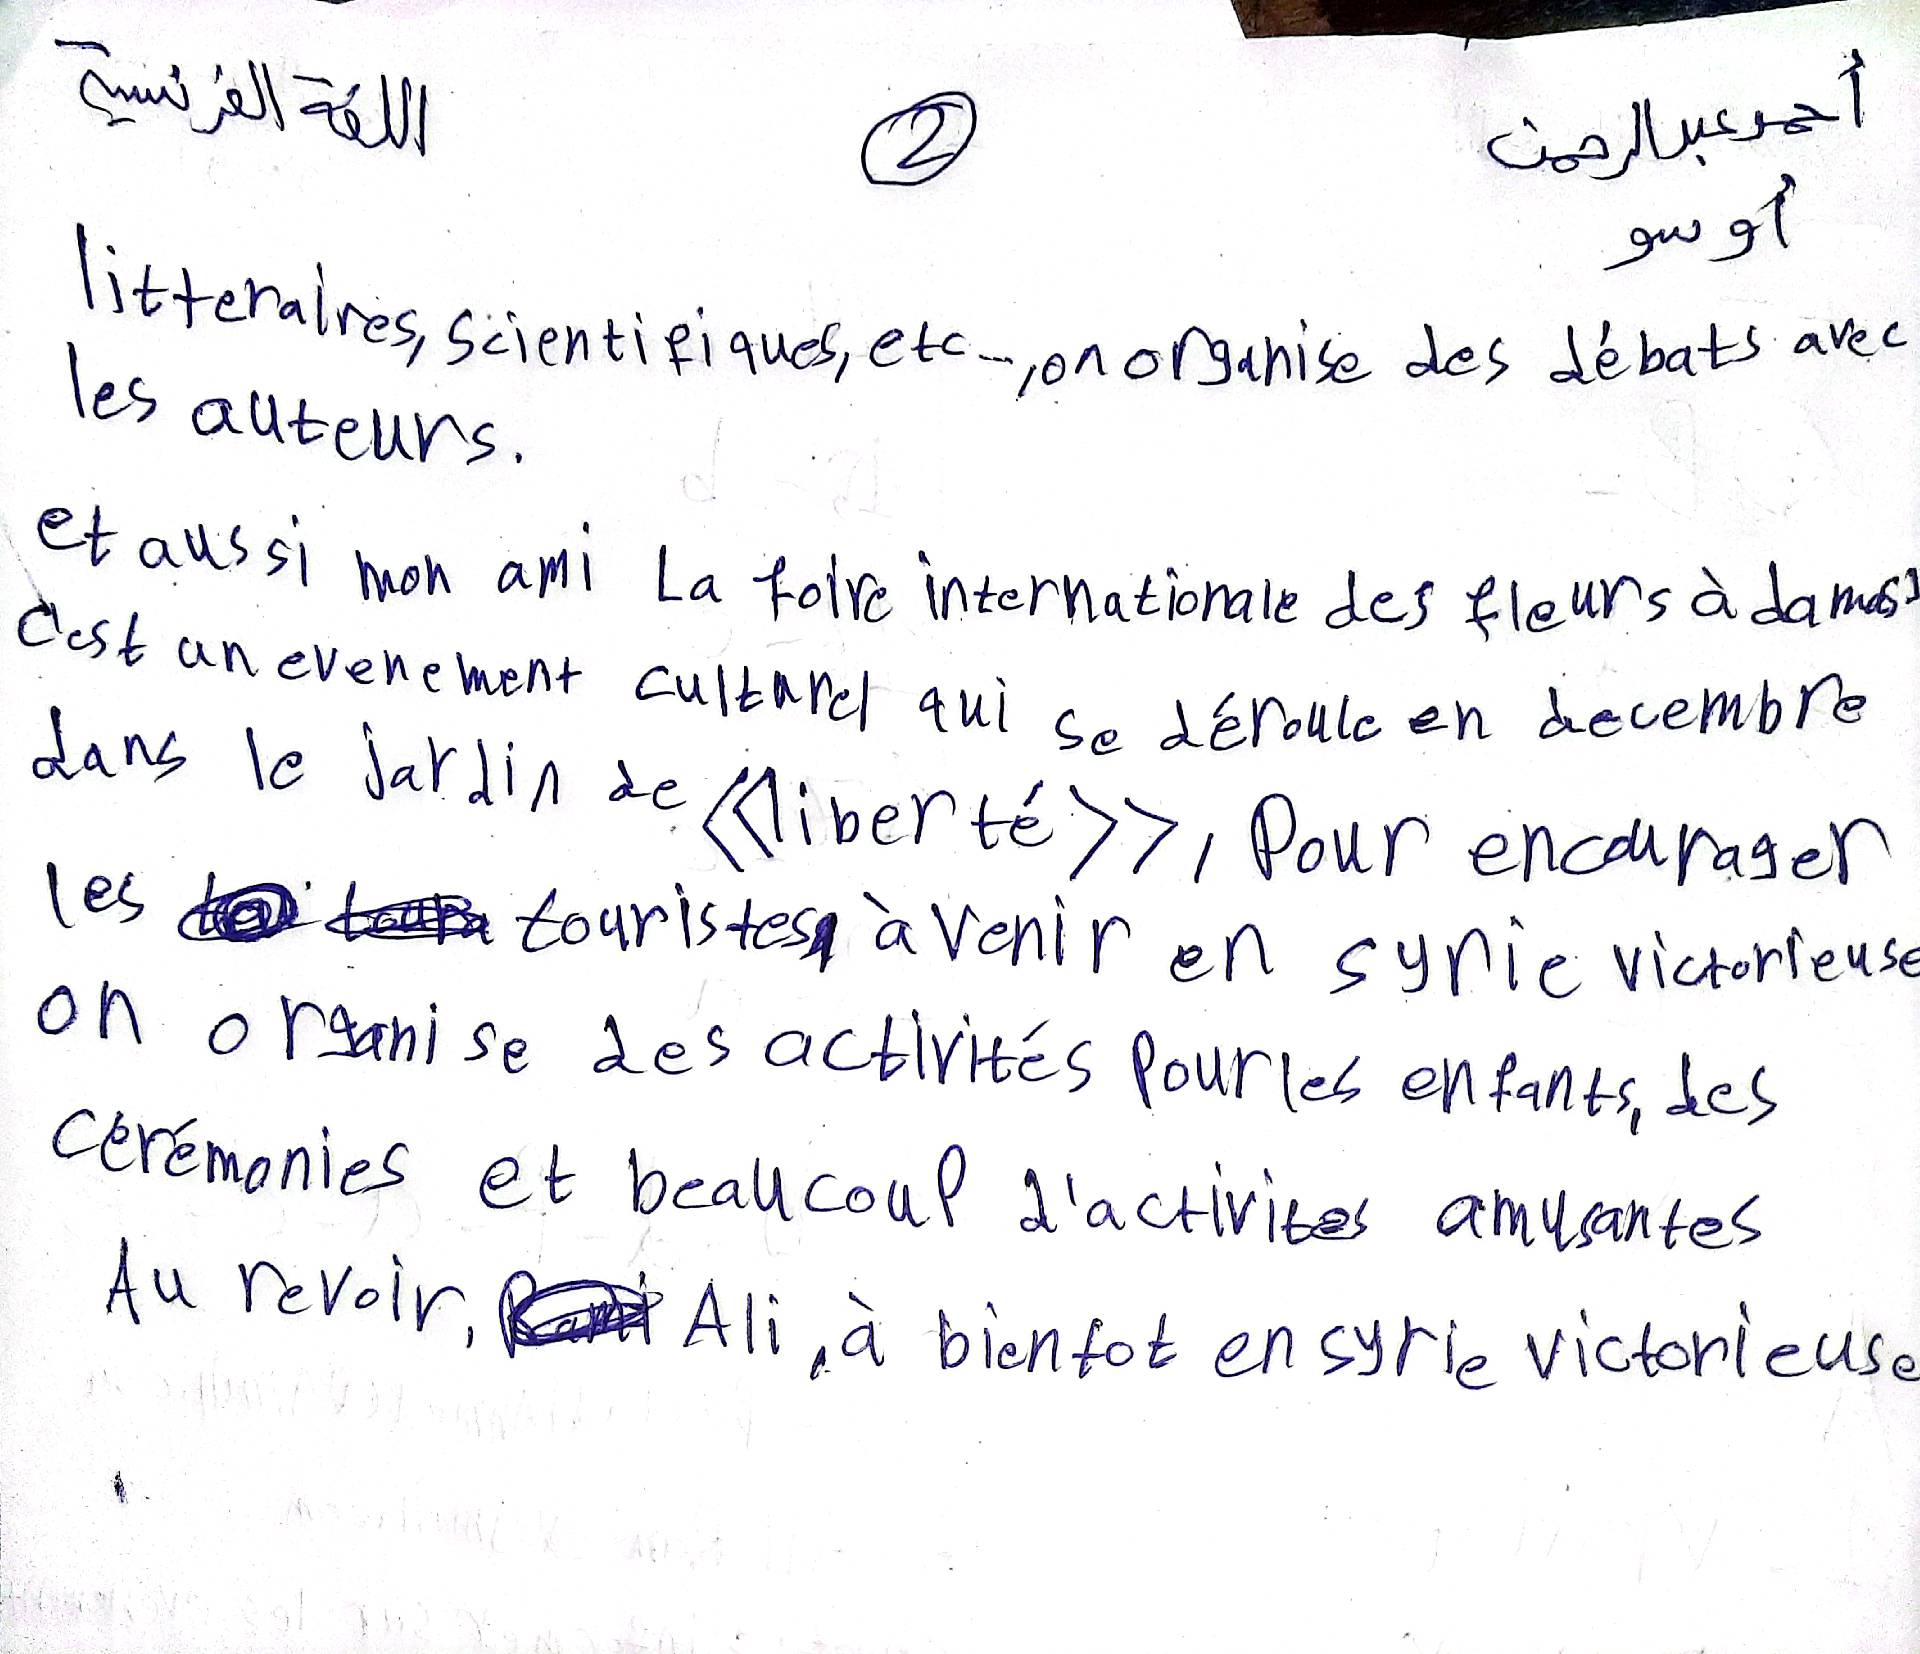 أحمد عبد الرحمن
أوسو
2
اللغة الفرنسية
litteraires, scientifiques, etc..., on organise des débats avec
les auteurs.
et aussi mon ami La foire internationale des fleurs à damas
c'est un evenement culturel qui se déroule en decembre
dans le jardin de <<liberté>>, Pour encourager
les touristes à venir en syrie victorieuse
on organise des activités Pour les enfants, des
cérémonies et beaucoup d'activites amusantes
Au revoir, Ali, à bientot en syrie victorieuse